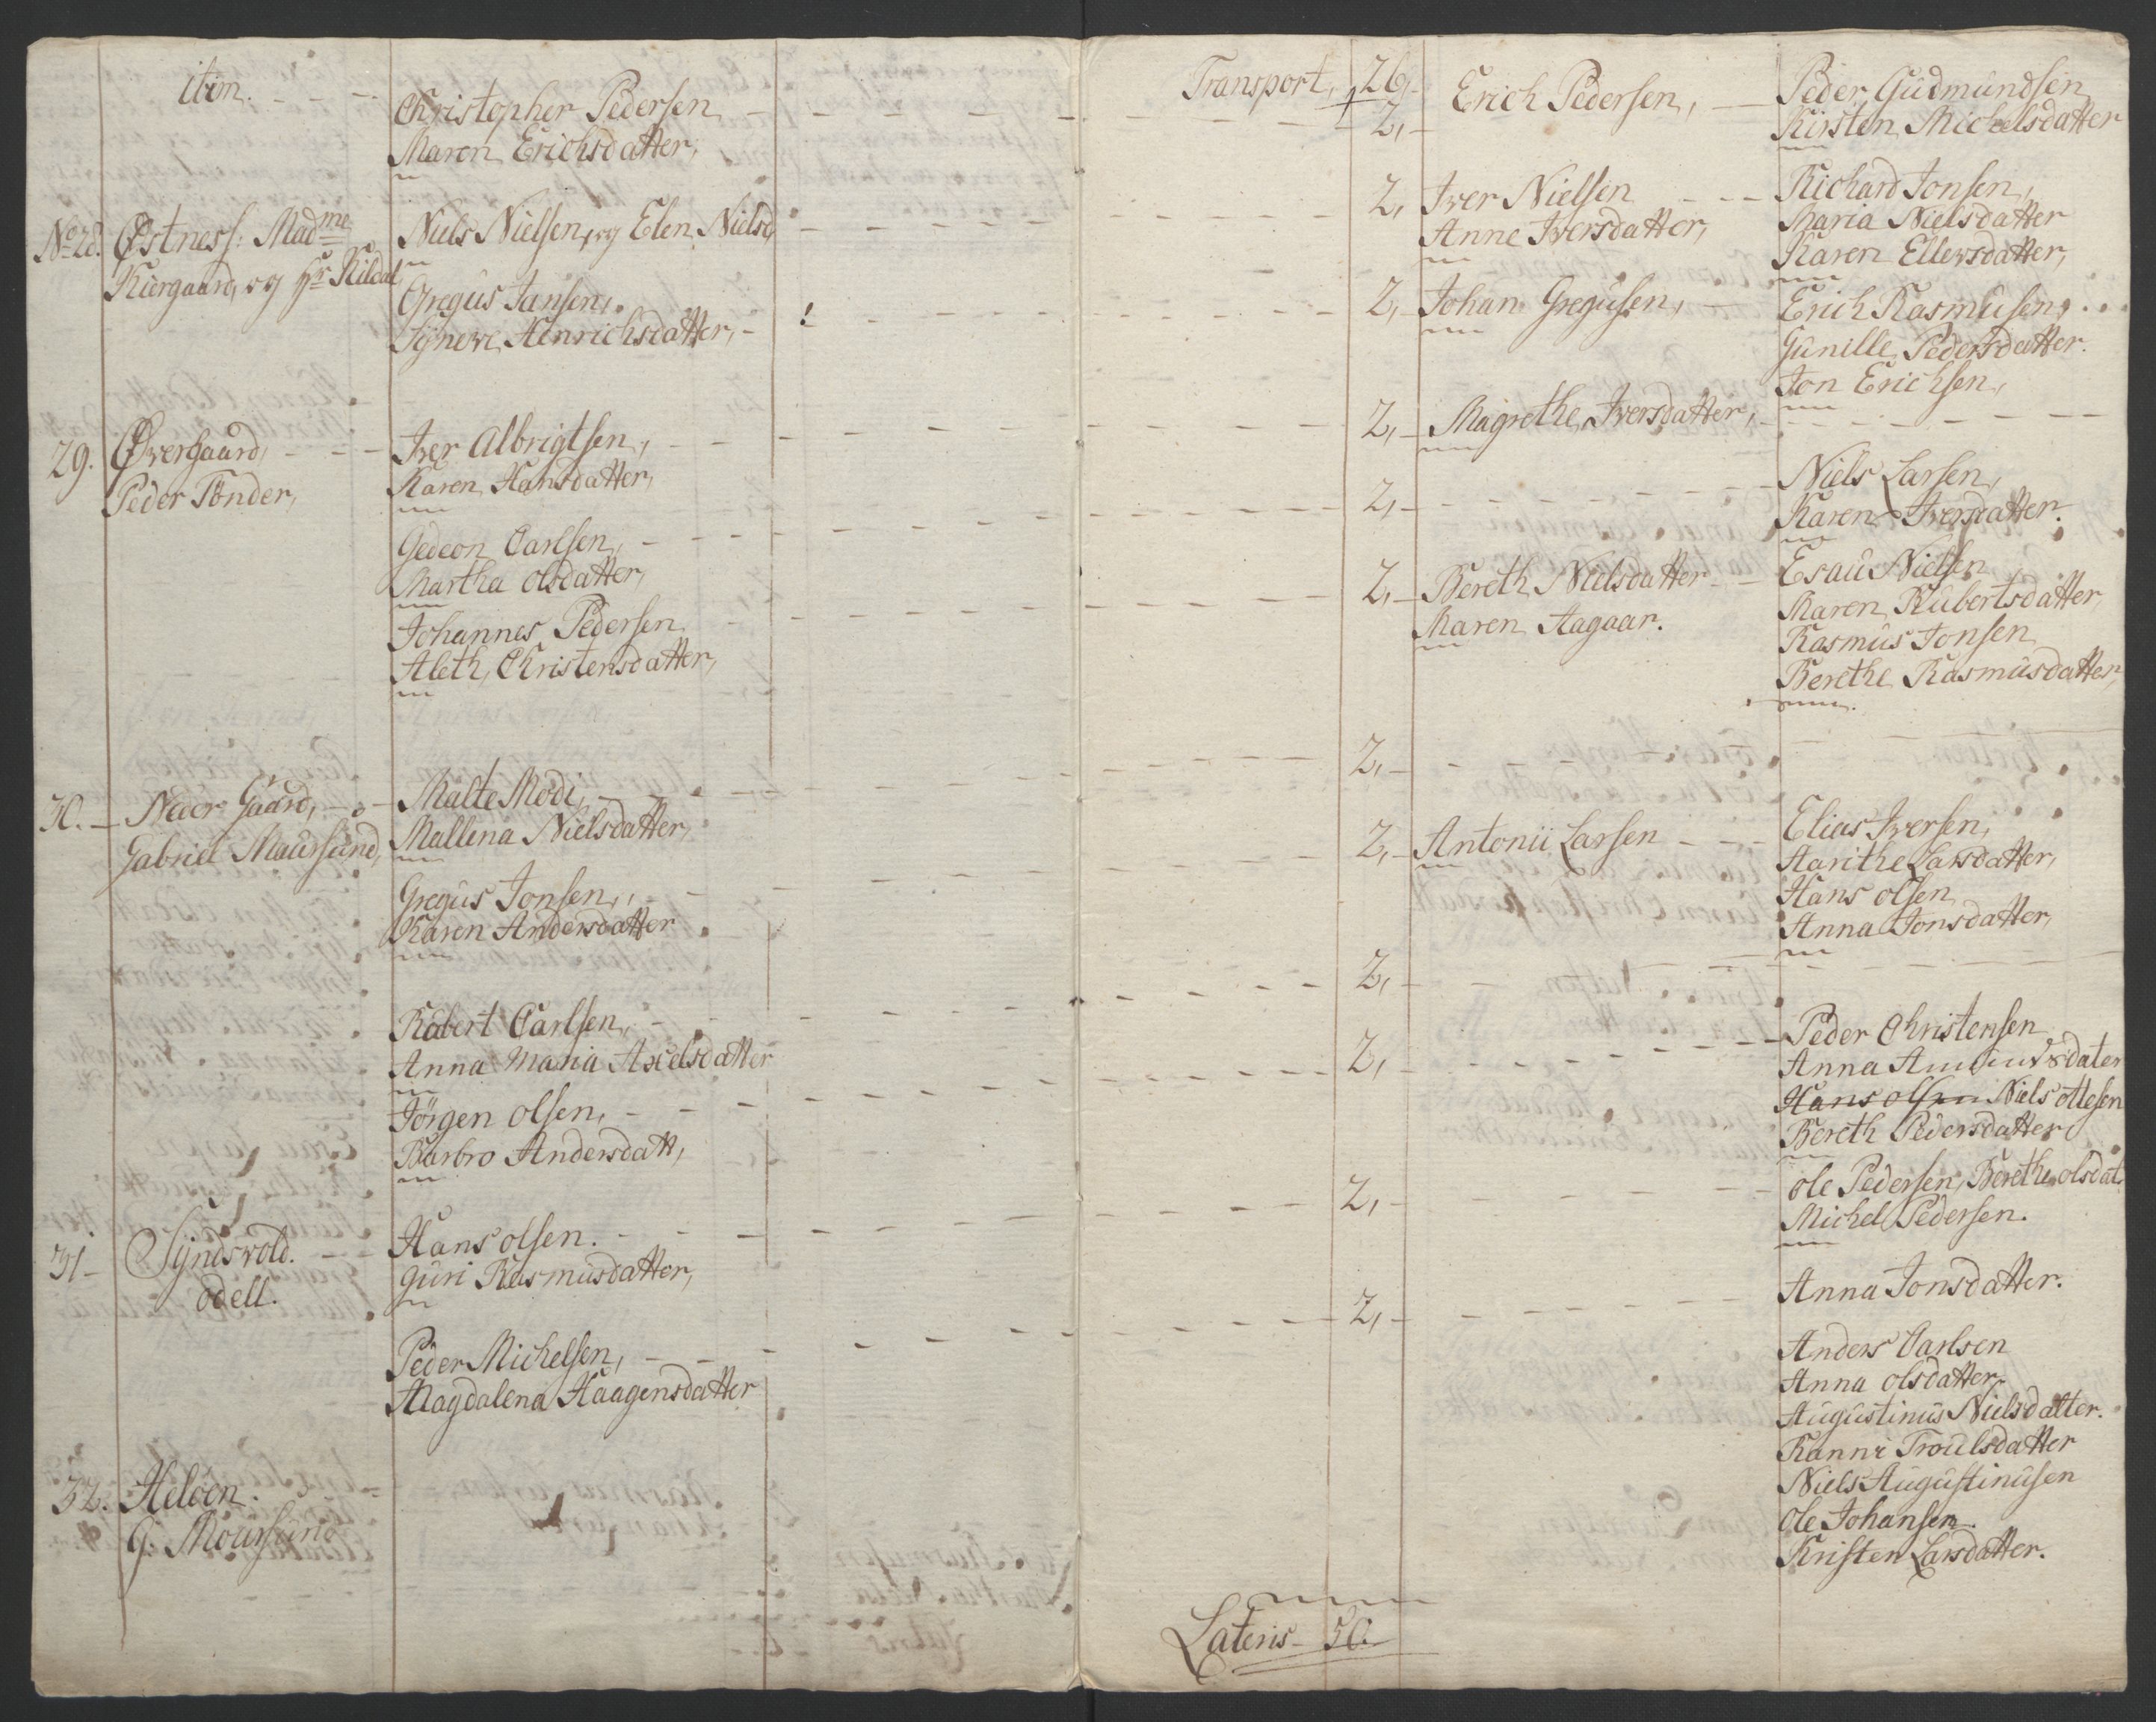 itim.
Christopher Pedersen
Maren Erichsdatter,
No 28. Østness: Madme
Kiergaard, og Hr Kildal
Niels Nielsen, og Elen Nielsd
Gregus Jansen,
Sÿnevi Henrichsdatter,
29. Øvergaard,
Peder Tønder,
Iver Albrigtsen,
Karen Hansdatter,
Gedeon Carlsen,
Martha Olsdatter,
Johannes Pedersen
Aleth Christensdatter,
30. Neder Gaard,
Gabriel Maursund,
Malte Modi,
Mallena Nielsdatter,
Gregus Jonsen,
Karen Andersdatter
Rubert Carlsen,
Anna Maria Axelsdatter
Jörgen Olsen,
Barbro Andersdatt,
31 Sÿndsvold.
odell.
Hans Olsen.
Guri Rasmusdatter,
Peder Michelsen,
Magdalena Haagensdatter
32. Heløen.
G. Moursund
Transport, 26,
2, Erich Pedersen,
Peder Gudmundsen
Kirsten Michelsdatter
2, Iver Nielsen
Anne Iversdatter,
Richard Jonsen,
Maria Nielsdatter
Karen Ellersdatter,
2, Johan Gregusen,
Erich Rasmusen,
Gunille Pedersdatter.
Jon Erichsen,
2, Magrethe Iversdatter,
2,
Niels Larsen,
Karen Iversdatter.
2, Bereth Nielsdatter
Maren Aagaar.
Esau Nielsen
Maren Rubertsdatter
Rasmus Jonsen
Berethe Rasmusdatter,
2,
2, Antonii Larsen
Elias Iversen,
Aarithe Larsdatter,
Hans Olsen
Anna Jonsdatter,
2,
2,
Peder Christensen
Anna dater
Hans Olsen Niels Ottesen
Bereth Pedersdatter
2,
Ole Pedersen, Berethe Olsdat.
Michel Pedersen.
Anna Jonsdatter.
2,
Anders Carlsen
Anna Olsdatter
Augustinus Nielsdatter.
Ranni Troulsdatter
Niels Augustinusen
Ole Johansen.
Kristen Larsdatter.
Lateris 50.